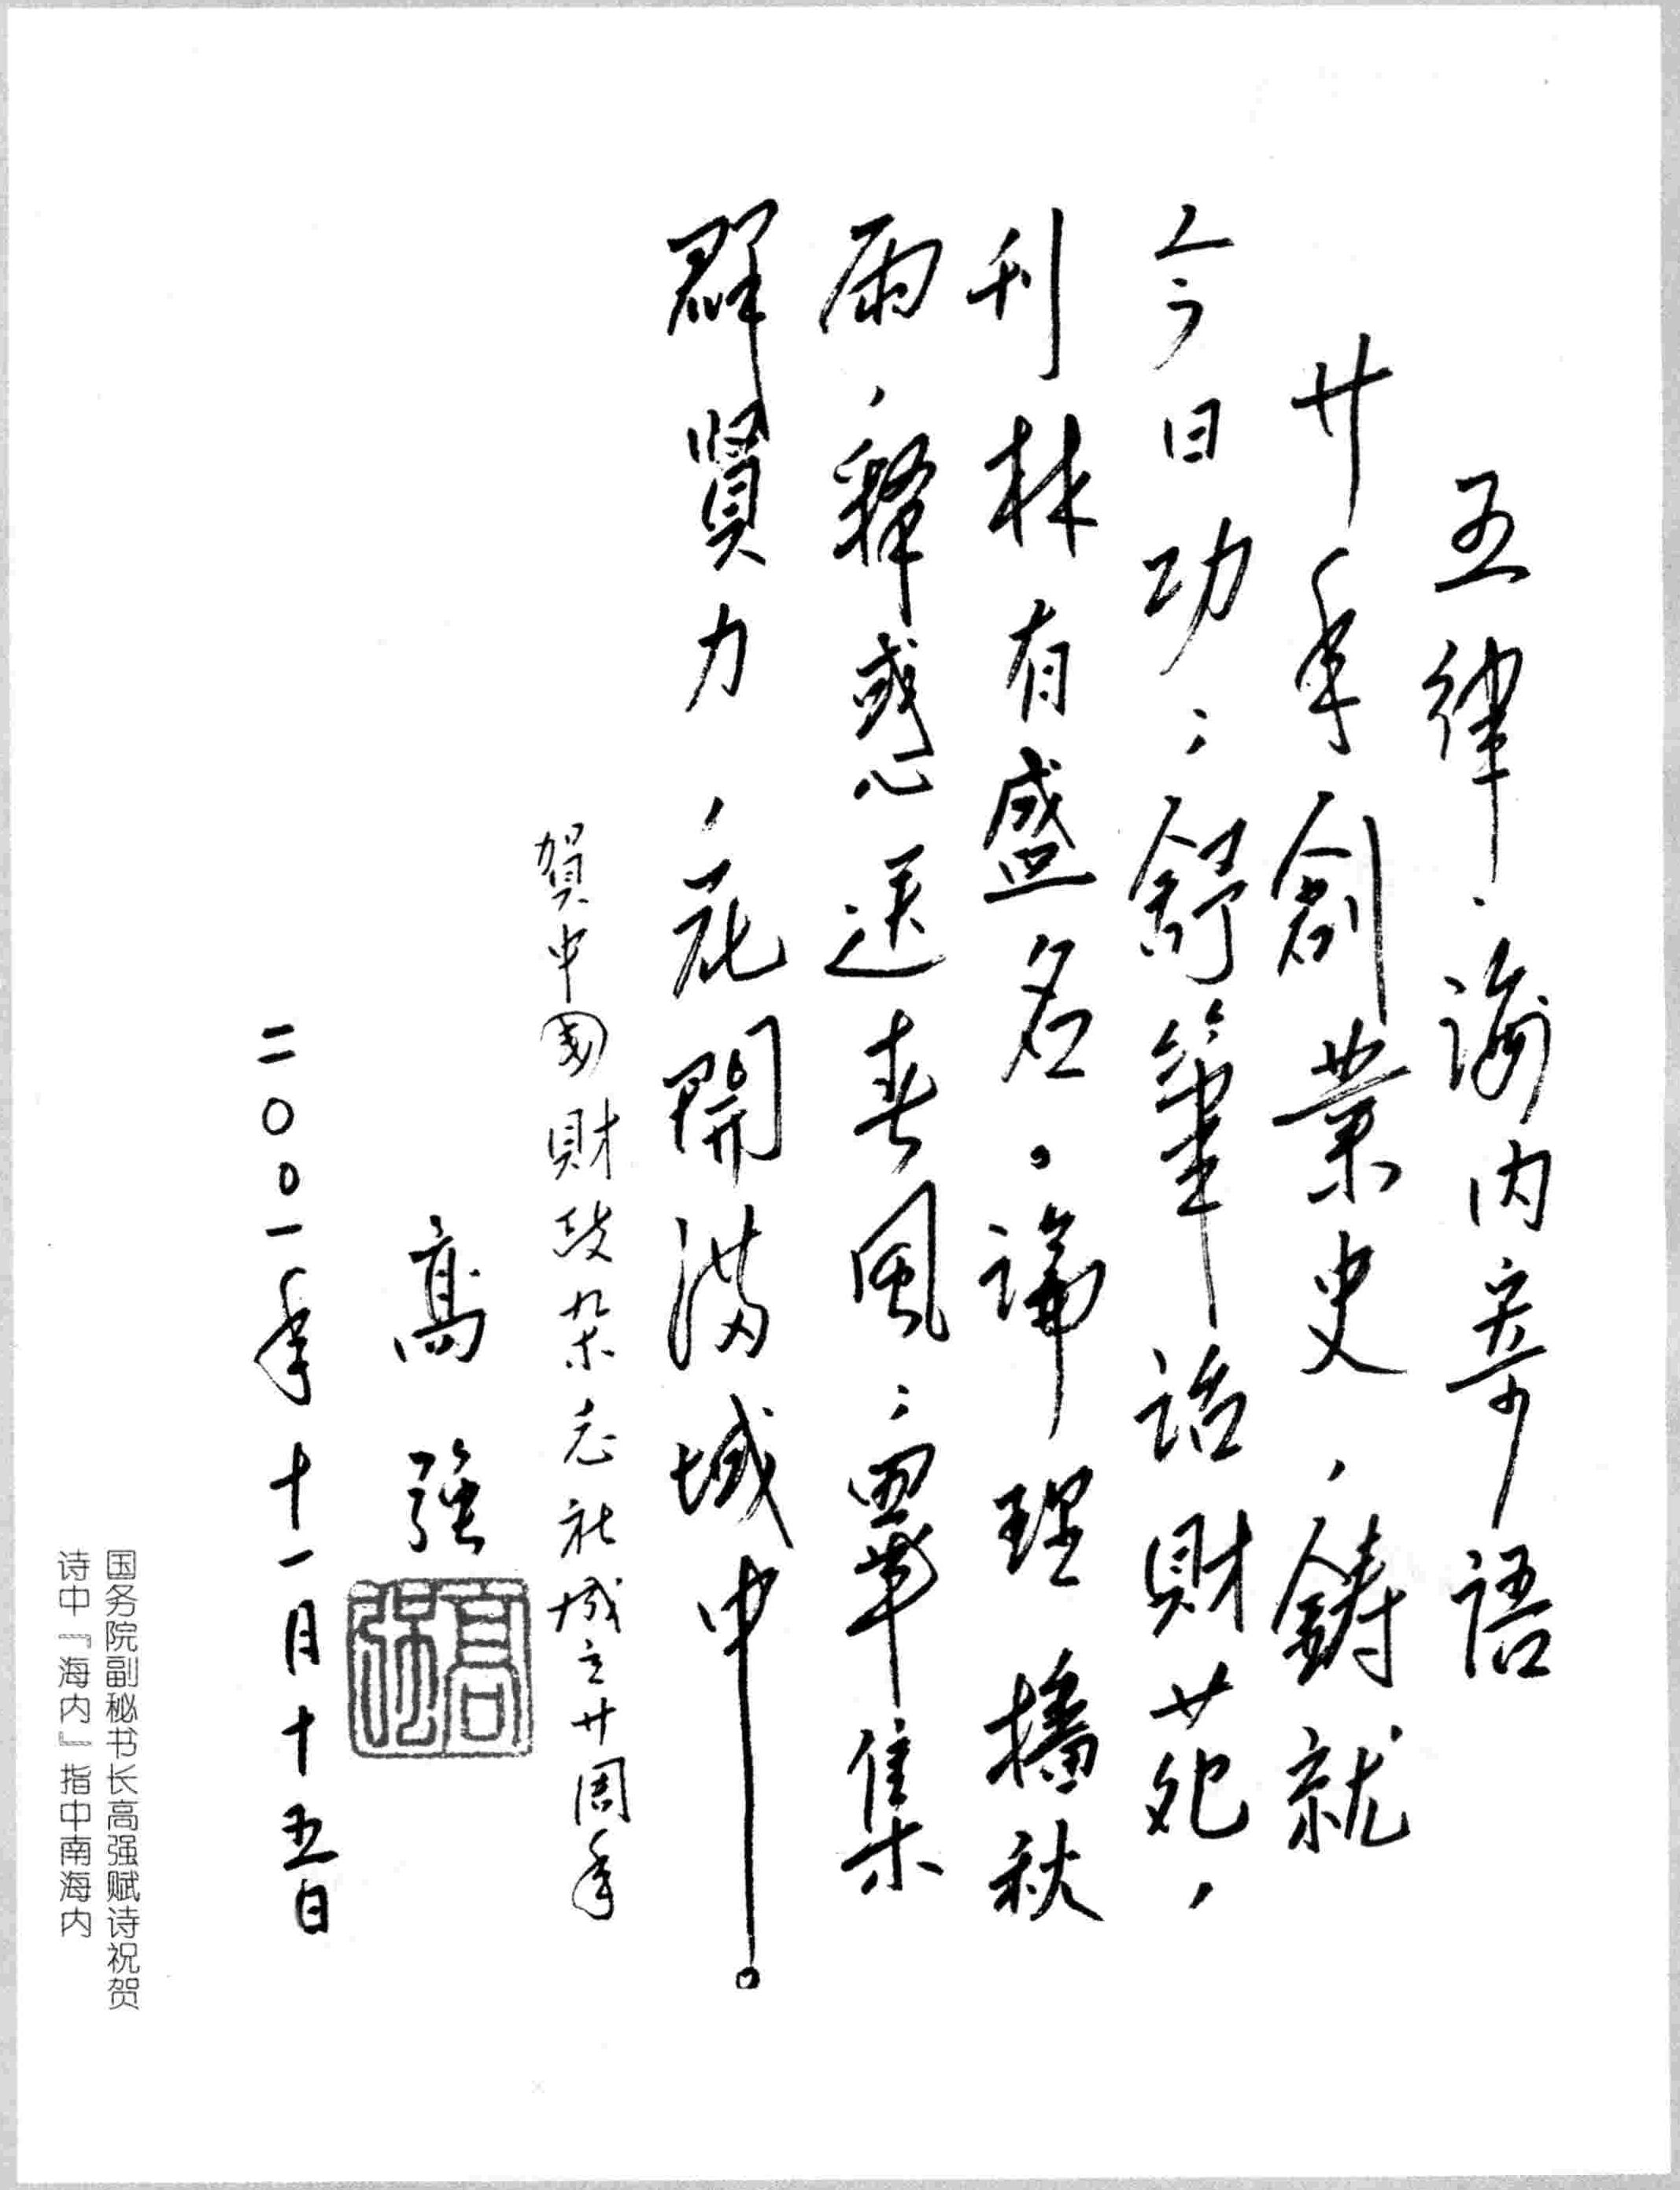 五律·海内寄语
廿年創業史,鑄就
今日功;舒筆話財苑,
刊林有盛名。論理播秋
雨,釋惑送春風;畢集
群賢力,花開满城中。
賀中國財政杂志社成立廿周年
高強
高强
二〇〇一年十一月十五日
国务院副秘书长高强赋诗祝贺
诗中『海内』指中南海内